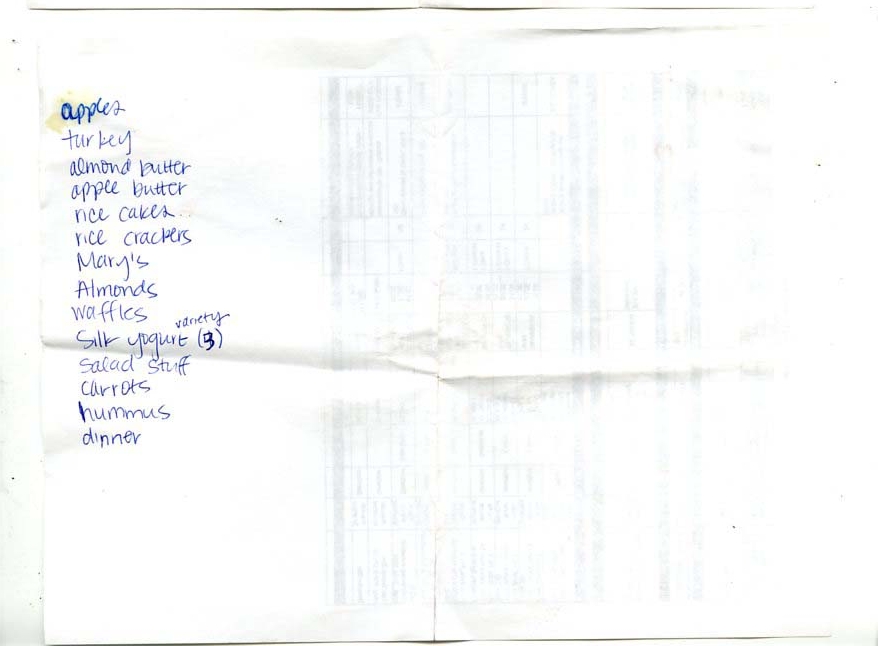 apples
turkey
almond butter
apple butter
rice cakes
rice crackers
Mary's
Almonds
waffles
variety
Silk yogurt (3)
Salad stuff
carrots
hummus
dinner